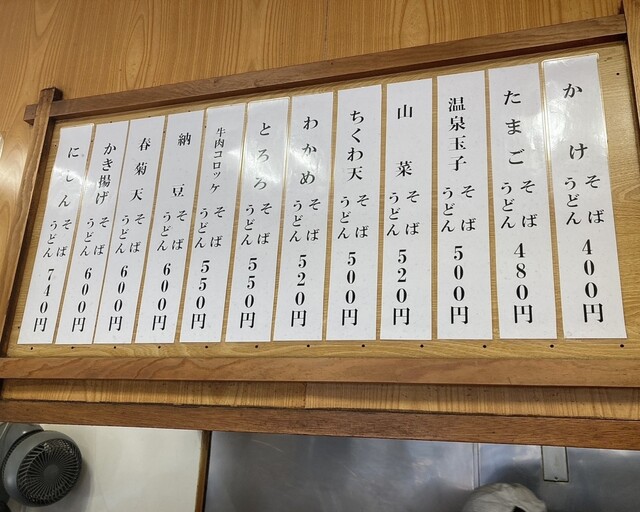 かけ そば うどん 400円
たまご そば うどん 480円
温泉玉子 そば うどん 500円
山菜 そば うどん 520円
ちくわ天 そば うどん 500円
わかめ そば うどん 520円
とろろ そば うどん 550円
牛肉コロッケ そば うどん 550円
納豆 そば うどん 600円
春菊天 そば うどん 600円
かき揚げ そば うどん 600円
にしん そば うどん 740円